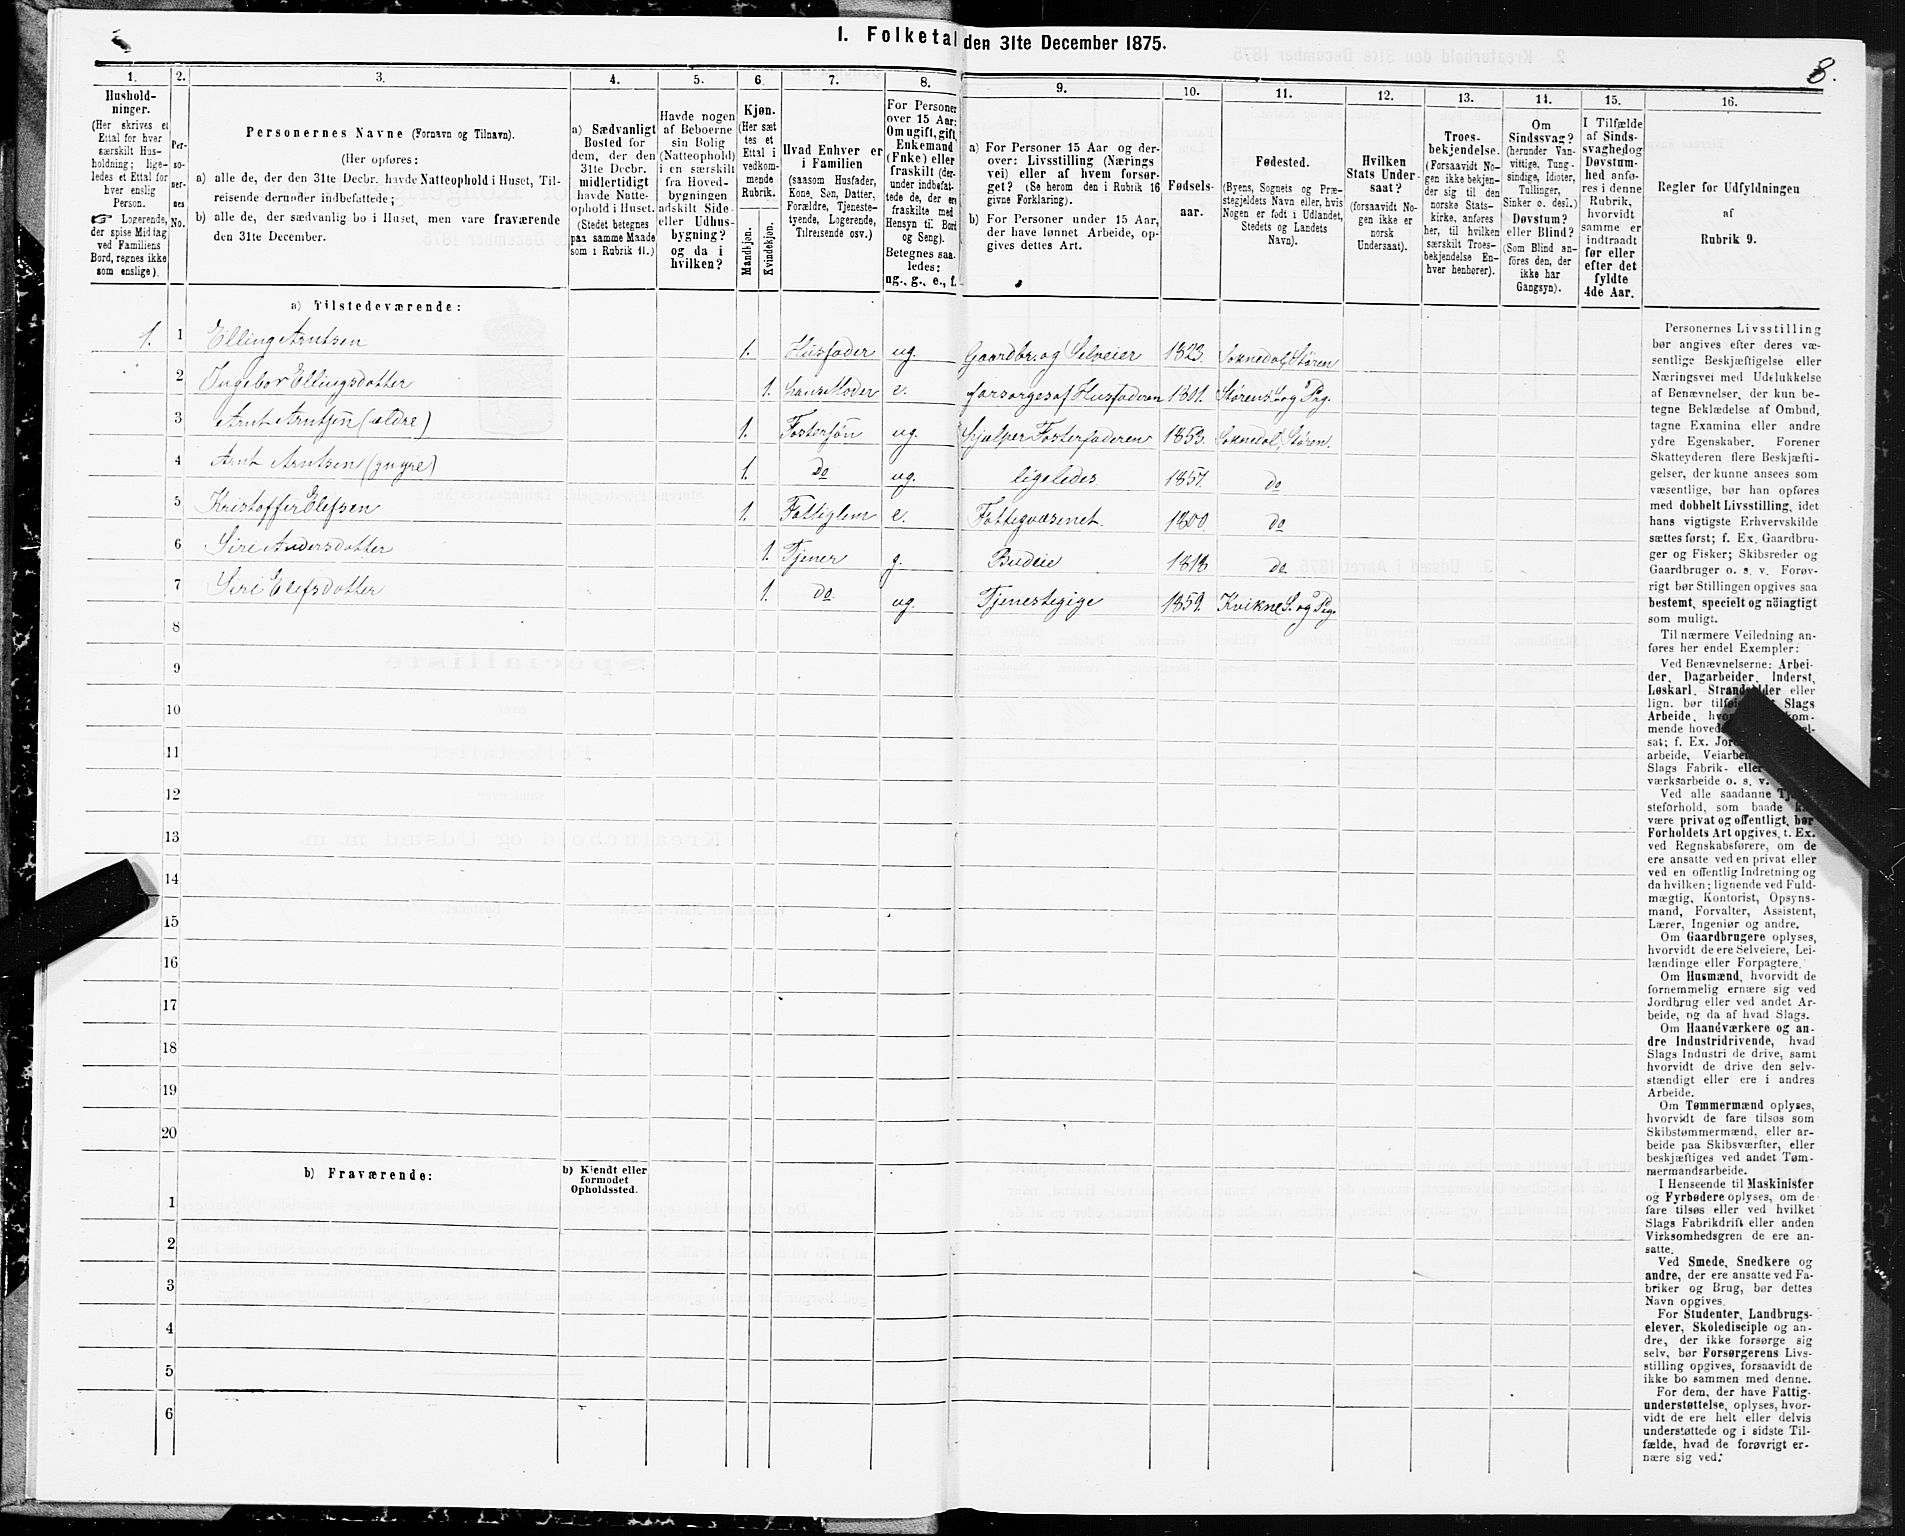 1. Folketal den 31te December 1875.
8.
1. 2. 3. 4. 5. 6. 7. 8. 9. 10. 11. 12. 13. 14. 15. 16.
Hushold-
ninger.
(Her skrives et
Ettal for hver
særskilt Hus-
holdning; lige-
ledes et Ettal for
hver enslig
Person.
☞ Logerende,
der spise Middag
ved Familiens
Bord, regnes ikke
som enslige).
Per-
so-
ner-
nes
No.
Personernes Navne (Fornavn og Tilnavn).
(Her opføres:
a) alle de, der den 31te Decbr. havde Natteophold i Huset, Til-
reisende derunder indbefattede;
b) alle de, der sædvanlig bo i Huset, men vare fraværende
den 31te December.
a) Sædvanligt
Bosted for
dem, der den
31te Decbr.
midlertidigt
havde Natte-
ophold i Huset.
(Stedet betegnes
paa samme Maade
som i Rubrik 11.)
Havde nogen
af Beboerne
sin Bolig
(Natteophold)
i en særskilt
fra Hoved-
bygningen
adskilt Side-
eller Udhus-
bygning?
og da i
hvilken?
Kjøn.
(Her sæt
tes et
Ettal i
vedkom-
mende
Rubrik.
Mandkjøn.
Kvindekjøn.
Hvad Enhver er
i Familien
(saasom Husfader,
Kone, Søn, Datter,
Forældre, Tjeneste-
tyende, Logerende,
Tilreisende osv.)
For Personer
over 15 Aar:
Om ugift, gift,
Enkemand
(Enke) eller
fraskilt (der-
under indbefat-
tede de, der ere
fraskilte med
Hensyn til Bord
og Seng).
Betegnes saa-
ledes:
ug., g., e., f.
a) For Personer 15 Aar og der-
over: Livsstilling (Nærings
vei) eller af hvem forsør-
get? (Se herom den i Rubrik 16
givne Forklaring).
b) For Personer under 15 Aar,
der have lønnet Arbeide, op-
gives dettes Art.
Fødsels-
aar.
Fødested.
(Byens, Sognets og Præ-
stegjeldets Navn eller, hvis
Nogen er født i Udlandet,
Stedets og Landets
Navn).
Hvilken
Stats Under-
saat?
(forsaavidt No-
gen ikke er
norsk
Undersaat).
Troes-
bekjendelse.
(Forsaavidt No-
gen ikke bekjen-
der sig til den
norske Stats-
kirke, anføres
her, til hvilken
særskilt Troes-
bekjendelse En-
hver henhører).
Om
Sindssvag?
(herunder Van-
vittige, Tung-
sindige, Idioter,
Tullinger,
Sinker o. desl.)
Døvstum?
eller Blind?
(Som Blind an-
føres den, der
ikke har
Gangsyn).
I Tilfælde
af Sinds-
svaghed og
Døvstum-
hed anfø-
res i denne
Rubrik,
hvorvidt
samme er
indtraadt
før eller
efter det
fyldte
4de Aar.
Regler for Udfyldningen
af
Rubrik 9.
a) Tilstedeværende:
1. 1 Elling Arntsen 1. Husfader ug. Gaardbr. og Selveier 1823. Soknedal, Støren
2 Ingebor Ellingsdotter 1. hans Moder e. forsørges af Husfaderen 1801. Størens S. og Pg.
3 Arnt Arntsen (ældre) 1. Fostersøn ug. hjælper Fosterfaderen 1853. Soknedal, Støren.
4 Arnt Arntsen (yngre) 1. do ug. ligeledes 1857. do
5 Kristoffer Elefsen 1. Fattiglem e. Fattigvæsenet. 1800. do
6 Siri Andersdotter 1. Tjener g. Budeie 1818 do
7 Siri Elefsdotter 1. do. ug. Tjenestegige 1859. Kvikne S. og Pg.
8
9
10
11
12
13
14
15
16
17
18
19
20
b) Fraværende:
b) Kjendt eller
formodet
Opholdssted.
1
2
3
4
5
6
Personernes Livsstilling
bør angives efter deres væ-
sentlige Beskjæftigelse eller
Næringsvei med Udelukkelse
af Benævnelser, der kun be-
tegne Beklædelse af Ombud,
tagne Examina eller andre
ydre Egenskaber. Forener
Skatteyderen flere Beskjæfti-
gelser, der kunne ansees som
væsentlige, bør han opføres
med dobbelt Livsstilling, idet
hans vigtigste Erhvervskilde
sættes først; f. Ex. Gaardbru-
ger og Fisker; Skibsreder og
Gaardbruger o. s. v. Forøv-
rigt bør Stillingen opgives saa
bestemt, specielt og nöiagtigt
som muligt.
Til nærmere Veiledning an-
føres her endel Exempler:
Ved Benævnelserne: Arbei-
der, Dagarbeider, Inderst,
Løskarl, Strandsidder eller
lign. bør
Slags
Arbeide,
mende
sat; f. Ex.
arbeide,
Slags Fabrik- eller
værksarbeide o. s. v.
Ved alle saadanne
steforhold, som baade
være privat og offentligt, bør
Forholdets Art opgives, t. Ex.
ved Regnskabsførere, om de
ere ansatte ved en privat eller
ved en offentlig Indretning og
da hvilken; lignende ved Fuld-
mægtig, Kontorist, Opsyns-
mand, Forvalter, Assistent,
Lærer, Ingeniør og andre.
Om Gaardbrugere oplyses,
hvorvidt de ere Selveiere, Lei-
lændinge eller Forpagtere.
Om Husmænd, hvorvidt de
fornemmelig ernære sig ved
Jordbrug eller ved andet Ar-
beide, og da af hvad Slags.
Om Haandværkere og an-
dre Industridrivende, hvad
Slags Industri de drive, samt
hvorvidt de drive den selv-
stændigt eller ere i andres
Arbeide.
Om Tømmermænd oplyses,
hvorvidt de fare tilsøs som
Skibstømmermænd, eller ar-
beide paa Skibsværfter, eller
beskjæftiges ved andet Tøm-
mermandsarbeide.
I Henseende til Maskinister
og Fyrbødere oplyses, om de
fare tilsøs eller ved hvilket
Slags Fabrikdrift eller anden
Virksomhedsgren de ere an-
satte.
Ved Smede, Snedkere og
andre, der ere ansatte ved Fa-
briker og Brug, bør dettes
Navn opgives.
For Studenter, Landbrugs-
elever, Skoledisciple og an-
dre, der ikke forsørge sig
selv, bør Forsørgerens Livs-
stilling opgives, forsaavidt de
ikke bo sammen med denne.
For dem, der have Fattig-
understøttelse, oplyses, hvor-
vidt de ere helt eller delvis
understøttede og i sidste Til-
fælde, hvad de forøvrigt er-
nære sig ved.